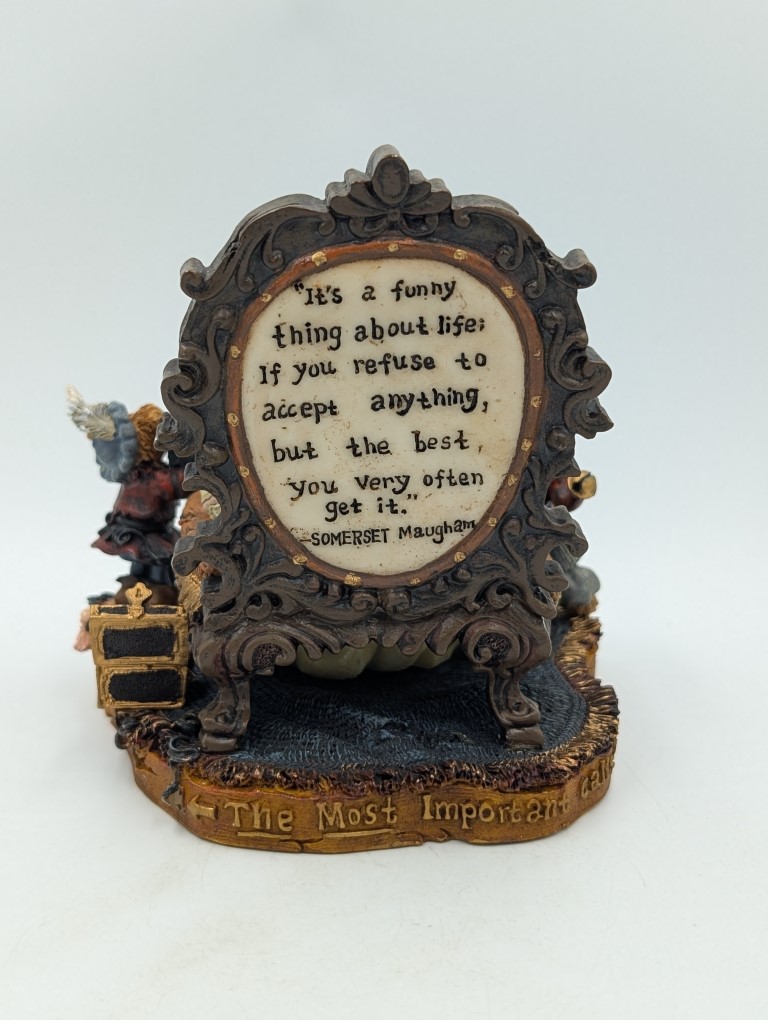 "It's a funny
thing about life;
If you refuse to
accept anything,
but the best,
you very often
get it."
—SOMERSET Maugham
The Most Important